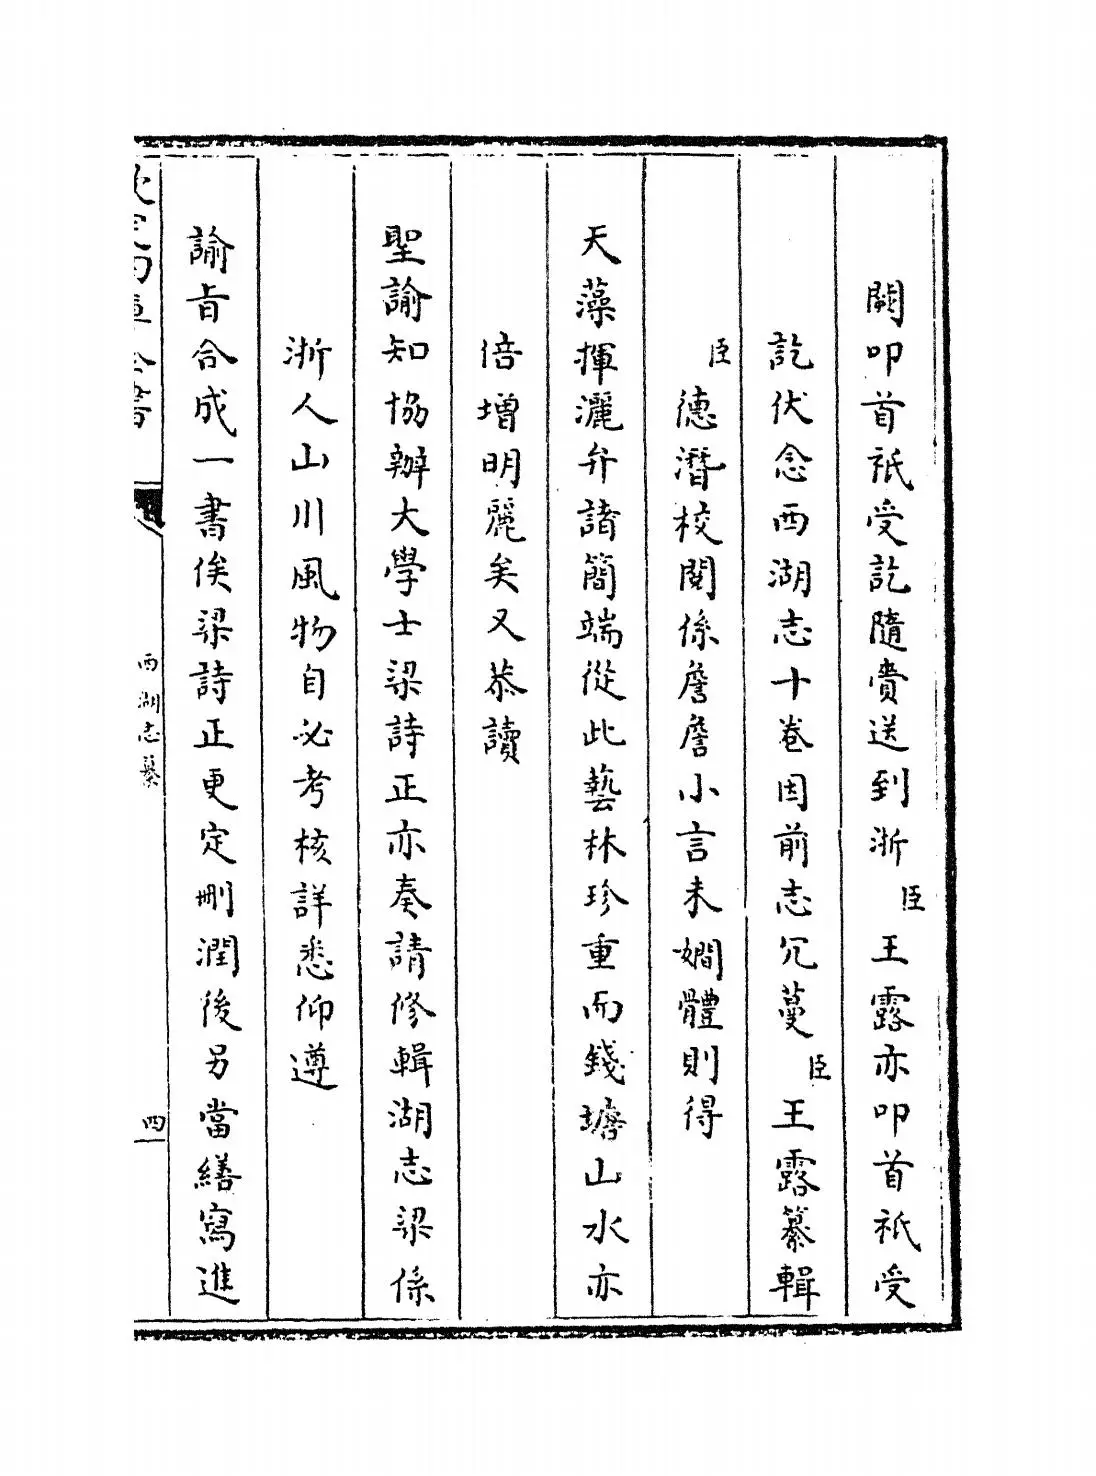 闕叩首祇受訖隨賫送到浙臣王露亦叩首祇受
訖伏念西湖志十卷因前志冗蔓臣王露纂輯
臣德潛校閱係詹詹小言未嫺體則得
天藻揮灑弁諸簡端從此藝林珍重而錢塘山水亦
倍增明麗矣又恭讀
聖諭知協辦大學士梁詩正亦奏請修輯湖志梁係
浙人山川風物自必考核詳悉仰遵
諭旨合成一書俟梁詩正更定刪潤後另當繕寫進
欽定四庫全書
西湖志纂
四